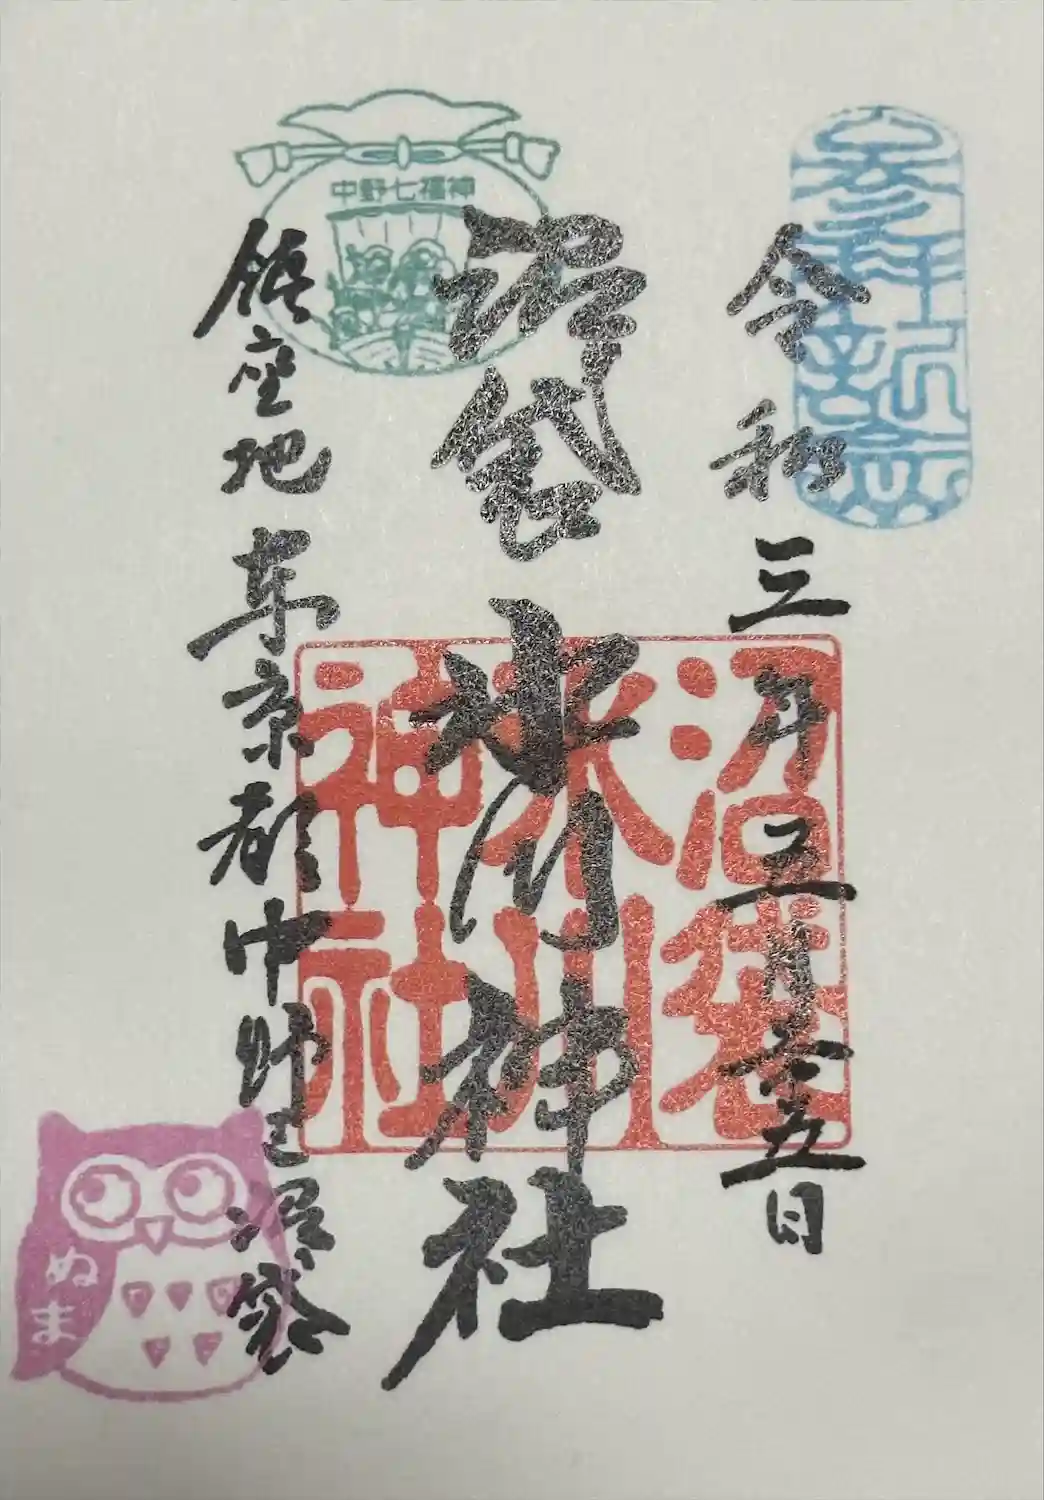 令和三年五月十五日
参拝祈誉
沼袋氷川神社
沼袋
氷川
神社
中野七福神
鎮座地東京都中野区沼袋
ぬま